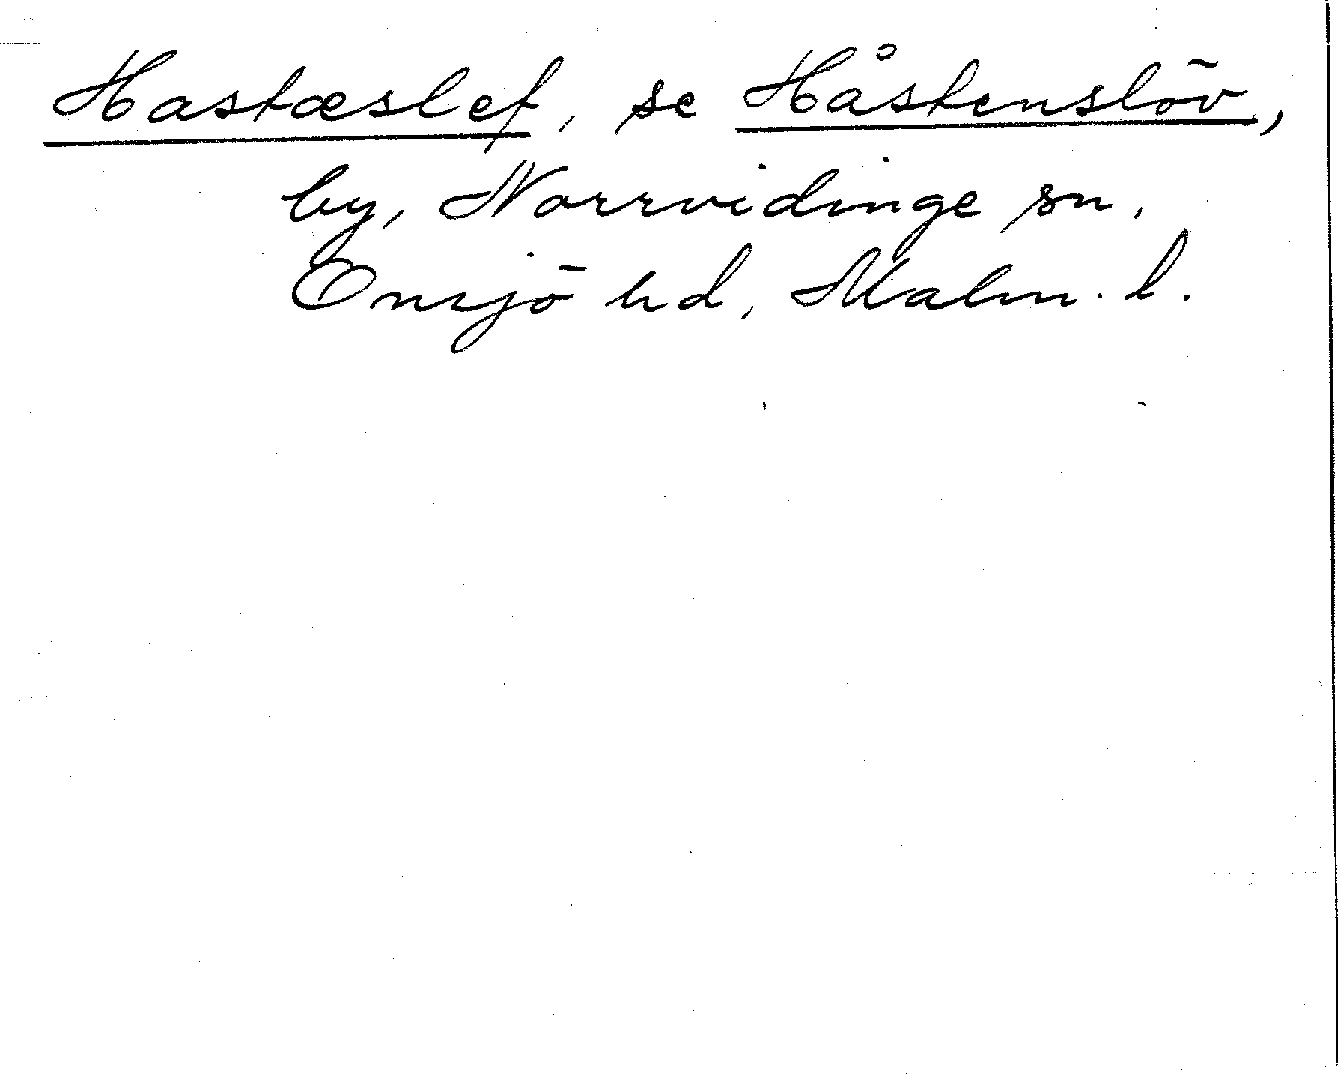 Hastæslef, se Håstenslöv,
by, Norrvidinge sn,
Onsjö hd, Malm. l.